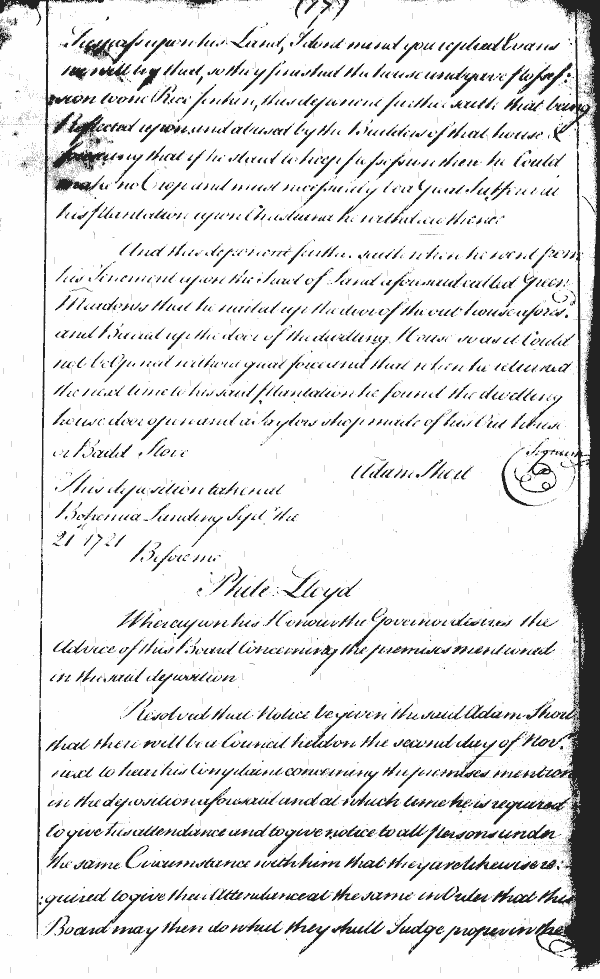 (177)
Trespass upon his Land, I dont mind you replied Evans
we will try that, so they finished the house and gave possef:
sion to one Rice Jenken, this deponent further saith that being
Reflected upon and abused by the Builders of that house &
fearing that if he staid to keep possession there he Could
make no Crop and must necessarily be a Great Sufferer in
his plantation upon Chastana he withdrew thence
And this deponent further saith when he went from
his Tenement upon the tract of Land aforesaid called Green
Meadows that he nailed up the door of the out house afores.
and Barred up the door of the dwelling House so as it Could
not be Opened without great force and that when he returned
the next time to his said plantation he found the dwelling
house door open and a Taylors shop made of his Out house
Adam Short
Signum
This deposition taken at
Bohemia Landing Sept. the
21 1721
Before me
Phile: Lloyd
Whereupon his Honour the Governor desires the
Advice of this Board Concerning the premises mentioned
in the said deposition
Resolved that Notice be given the said Adam Short
that there will be a Council held on the second day of Nov.
next to hear his Complaint concerning the premises mention
in the deposition aforesaid and at which time he is required
to give his attendance and to give notice to all persons under
the same Circumstance with him that they are likewise re:
:quired to give their Attendance at the same in Order that this
Board may then do what they shall Judge proper in the